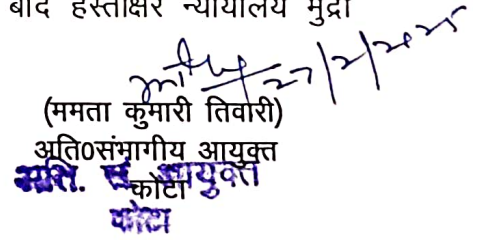 बाद हस्ताक्षर न्यायालय मुद्रा
27/2/2025
(ममता कुमारी तिवारी)
अति0संभागीय आयुक्त
कोटा
अति. सं. आयुक्त
कोटा